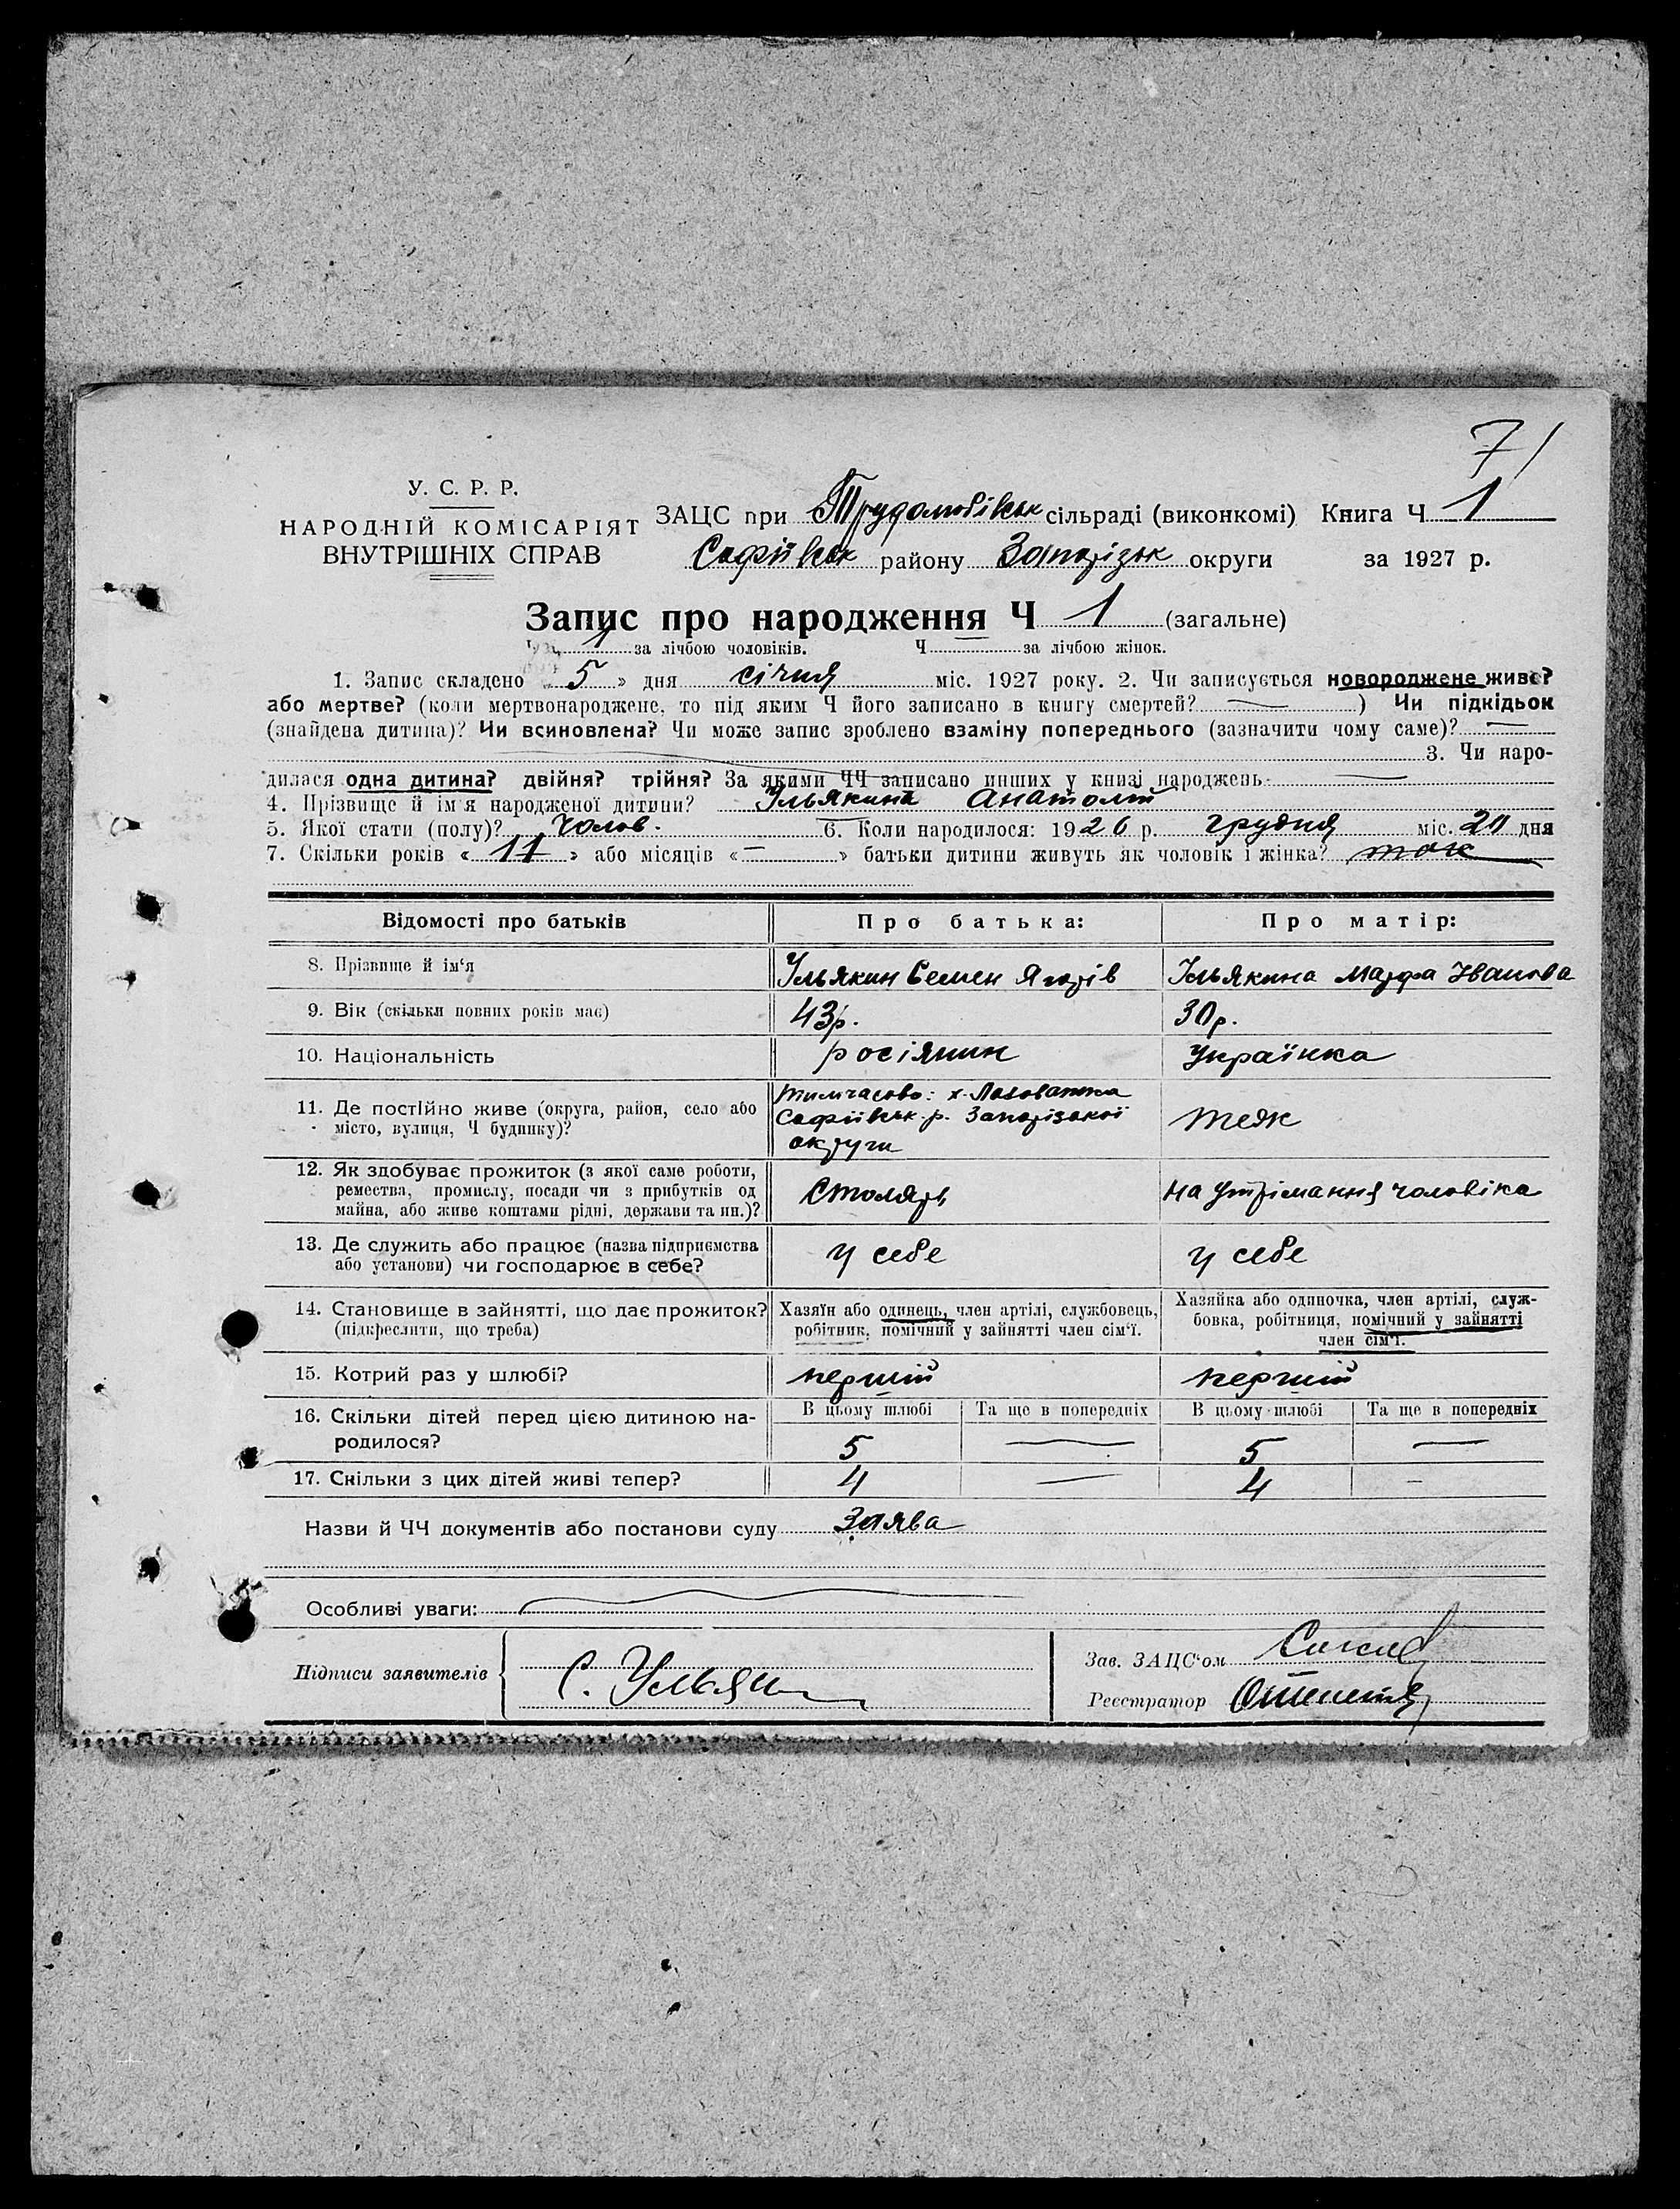 7/
У. С. Р. Р.
НАРОДНІЙ КОМІСАРІЯТ
ВНУТРІШНІХ СПРАВ
ЗАЦС при Трудолюбівськ сільраді (виконкомі) Книга Ч 1
Софіївськ району Запорізьк округи за 1927 р.
Запис про народження Ч 1 (загальне)
1 за лічбою чоловіків. Ч за лічбою жінок.
1. Запис складено « 5 » дня січня міс. 1927 року. 2. Чи записується новороджене живе?
або мертве? (коли мертвонароджене, то під яким Ч його записано в книгу смертей? — ) Чи підкідьок
(знайдена дитина)? Чи всиновлена? Чи може запис зроблено взаміну попереднього (зазначити чому саме)? —
3. Чи наро-
дилася одна дитина? двійня? трійня? За якими ЧЧ записано инших у книзі народжень —
4. Прізвище й ім'я народженої дитини? Ульякина Анатолій
5. Якої стати (полу)? Чолов. 6. Коли народилося: 1926 р. грудня міс. 20 дня
7. Скільки років « 11 » або місяців « — » батьки дитини живуть як чоловік і жінка? так
Відомості про батьків Про батька: Про матір:
8. Прізвище й ім‘я Ульякин Семен Ягорів Ульякина Марфа Іванова
9. Вік (скільки повних років має) 43р. 30р.
10. Національність росіянин Українка
11. Де постійно живе (округа, район, село або
місто, вулиця, Ч будинку)?
тимчасово: х. Лозоватка
Софіївськ. р. Запорізької
округи
теж
12. Як здобуває прожиток (з якої саме роботи,
ремества, промислу, посади чи з прибутків од
майна, або живе коштами рідні, держави та ин.)?
Столярь
на утрімання чоловіка
13. Де служить або працює (назва підприємства
або установи) чи господарює в себе?
у себе
у себе
14. Становище в зайнятті, що дає прожиток?
(підкреслити, що треба)
Хазяїн або одинець, член артілі, службовець,
робітник, помічний у зайнятті член сім‘ї.
Хазяйка або одиночка, член артілі, служ-
бовка, робітниця, помічний у зайнятті
член сім‘ї.
15. Котрий раз у шлюбі? перший перший
16. Скільки дітей перед цією дитиною на-
родилося?
В цьому шлюбі Та ще в попередніх В цьому шлюбі Та ще в попередніх
5 — 5 —
17. Скільки з цих дітей живі тепер? 4 — 4 -
Назви й ЧЧ документів або постанови суду Заява
Особливі уваги:
Підписи заявителів С. Ульякин
Зав. ЗАЦС‘ом
Реєстратор